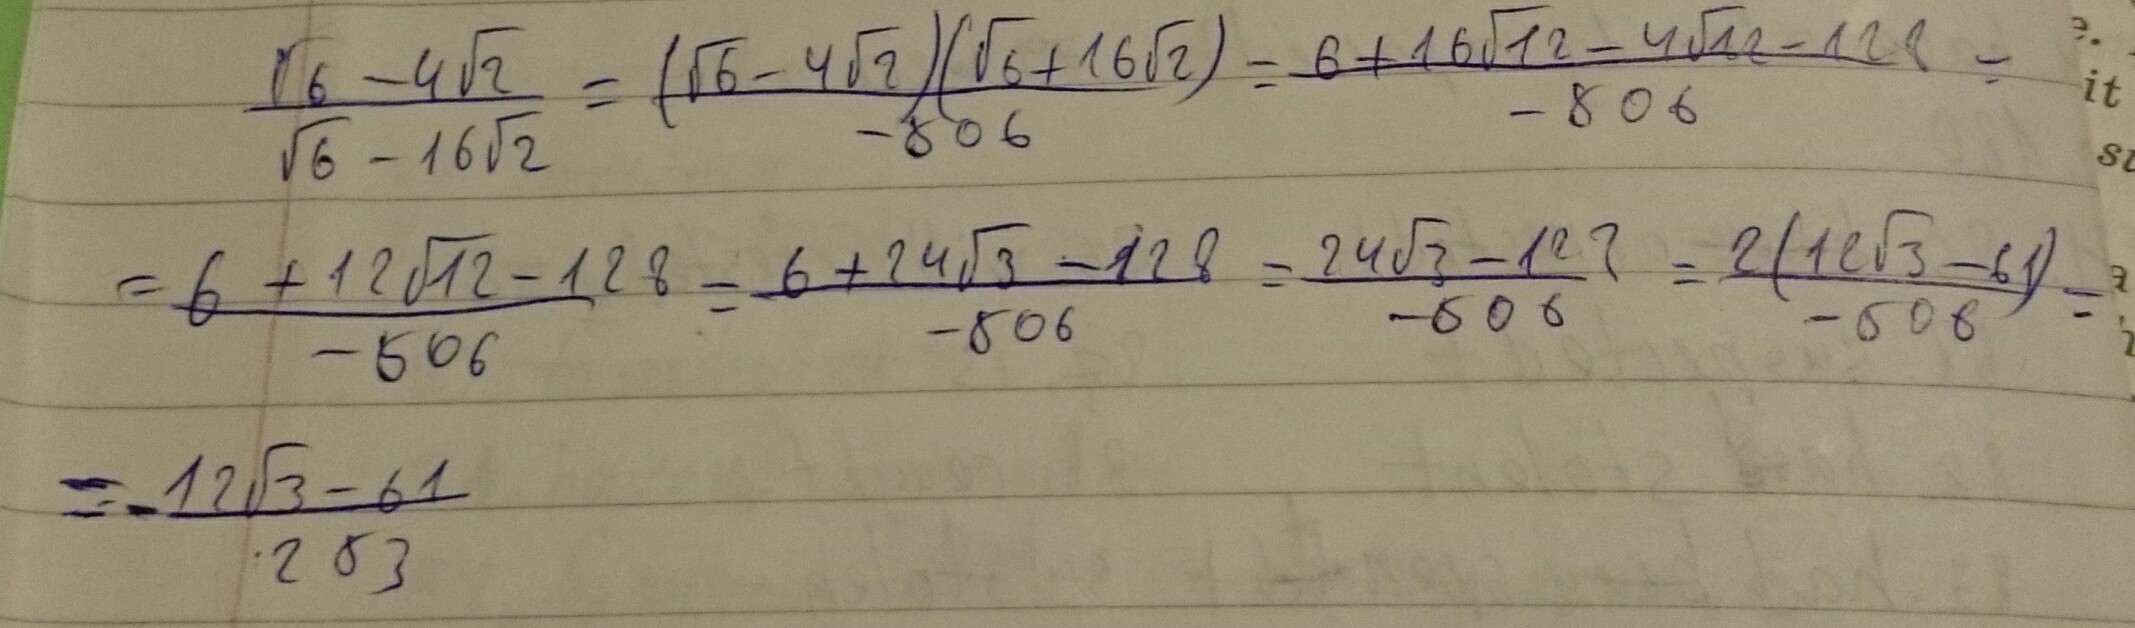 (√6 - 4√2)/(√6 - 16√2) = (√6 - 4√2)(√6 + 16√2)/-506 = (6 + 16√12 - 4√12 - 128)/-506 =
= (6 + 12√12 - 128)/-506 = (6 + 24√3 - 128)/-506 = (24√3 - 122)/-506 = 2(12√3 - 61)/-506 =
= - (12√3 - 61)/253
it